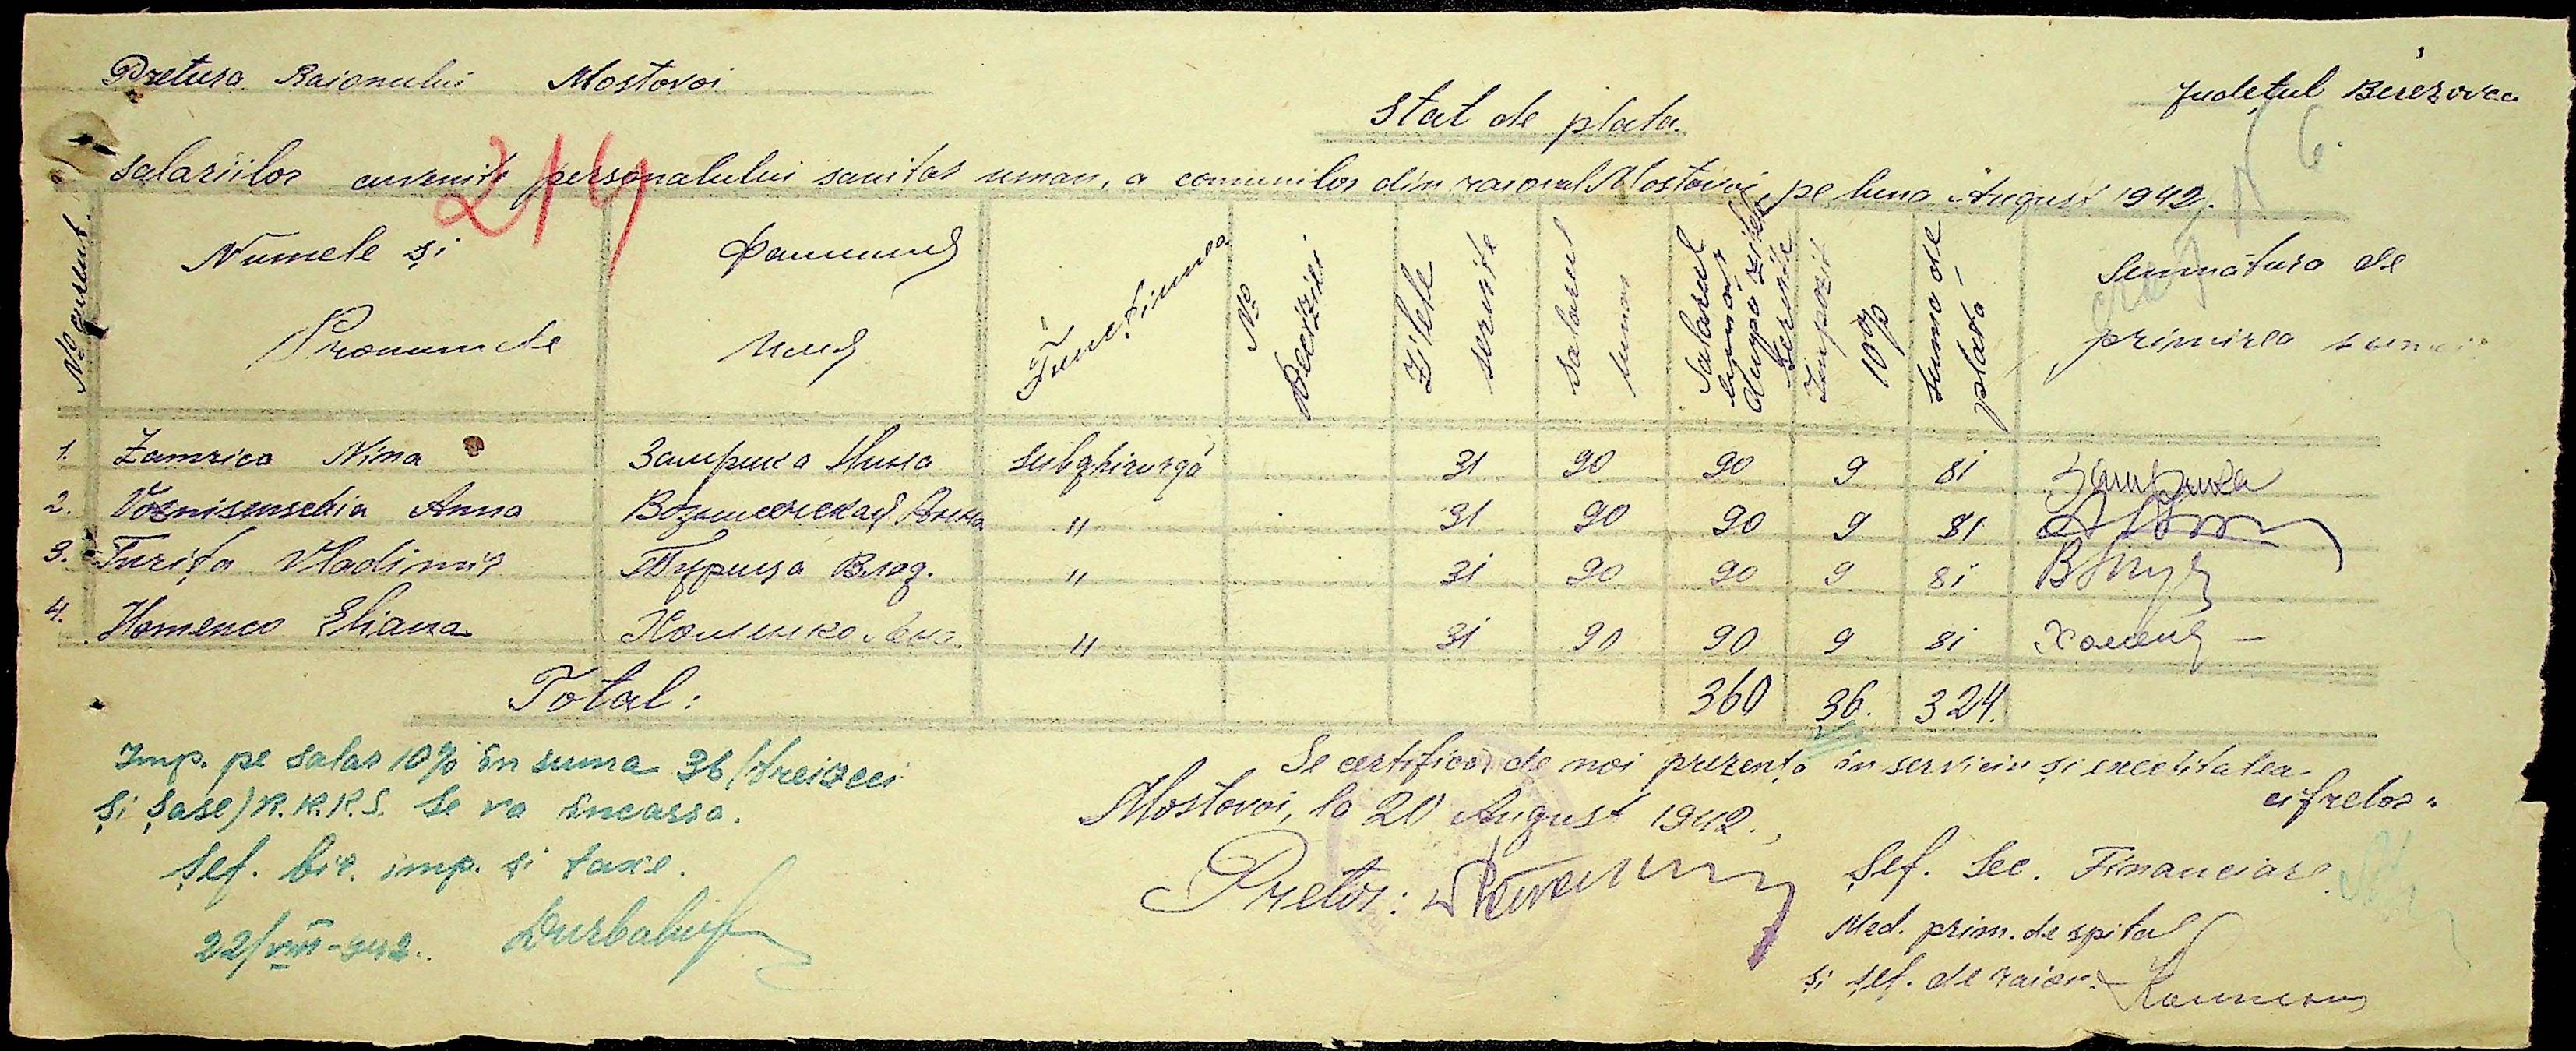 Pretura Raionului Mostovoi
Județul Berezovca
Stat de plata.
214
N 6.
salariilor cuvenite personalului sanitar uman, a comunilor din raional Mostovoi, pe luna August 1942.
No curent. Numele și Pronumele Фамилия Имя Funcțiunea No Deciziei Zilele servite Salarul lunar Salarul lunar dupa zilele servite Impozit 10% Suma de plată Semnătura de primirea sumei
1. Zamrica Nina Замрика Нина subghirurgă 31 90 90 9 81 Замрика
2. Voznisenschia Anna Вознисенская Анна " 31 90 90 9 81
3. Turița Vladimir Турица Влад. " 31 90 90 9 81
4. Homenco Eliana Хоменко " 31 90 90 9 81
Total: 360 36. 324.
Imp. pe salar 10% în suma 36 (treizeci
și șase) R.K.K.S. se va încassa.
Șef. bir. imp. și taxe.
22/VIII-942.
Se certifica de noi prezența în serviciu și exactitatea
cifrelor.
Mostovoi, la 20 August 1942.
Pretor:
Șef. Sec. Financiare.
Med. prim. de spital
și șef. de raion.